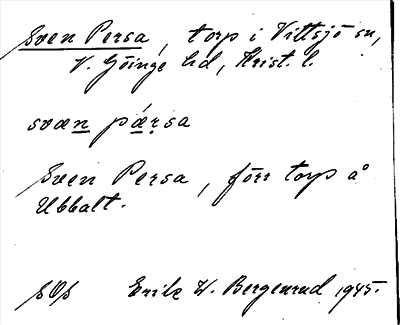 Sven Persa, torp i Vittsjö sn,
V. Göinge hd, Krist. l.
svæn pærsa
Sven Persa, förr torp å
Ubbalt.
Erik W. Bergenrud 1945.